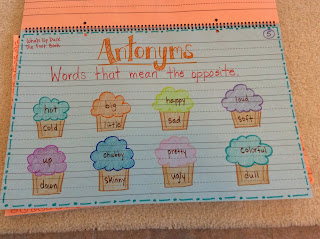 5
Antonyms
Words that mean the opposite.
hot
cold
big
little
happy
sad
loud
soft
up
down
chubby
skinny
pretty
ugly
colorful
dull